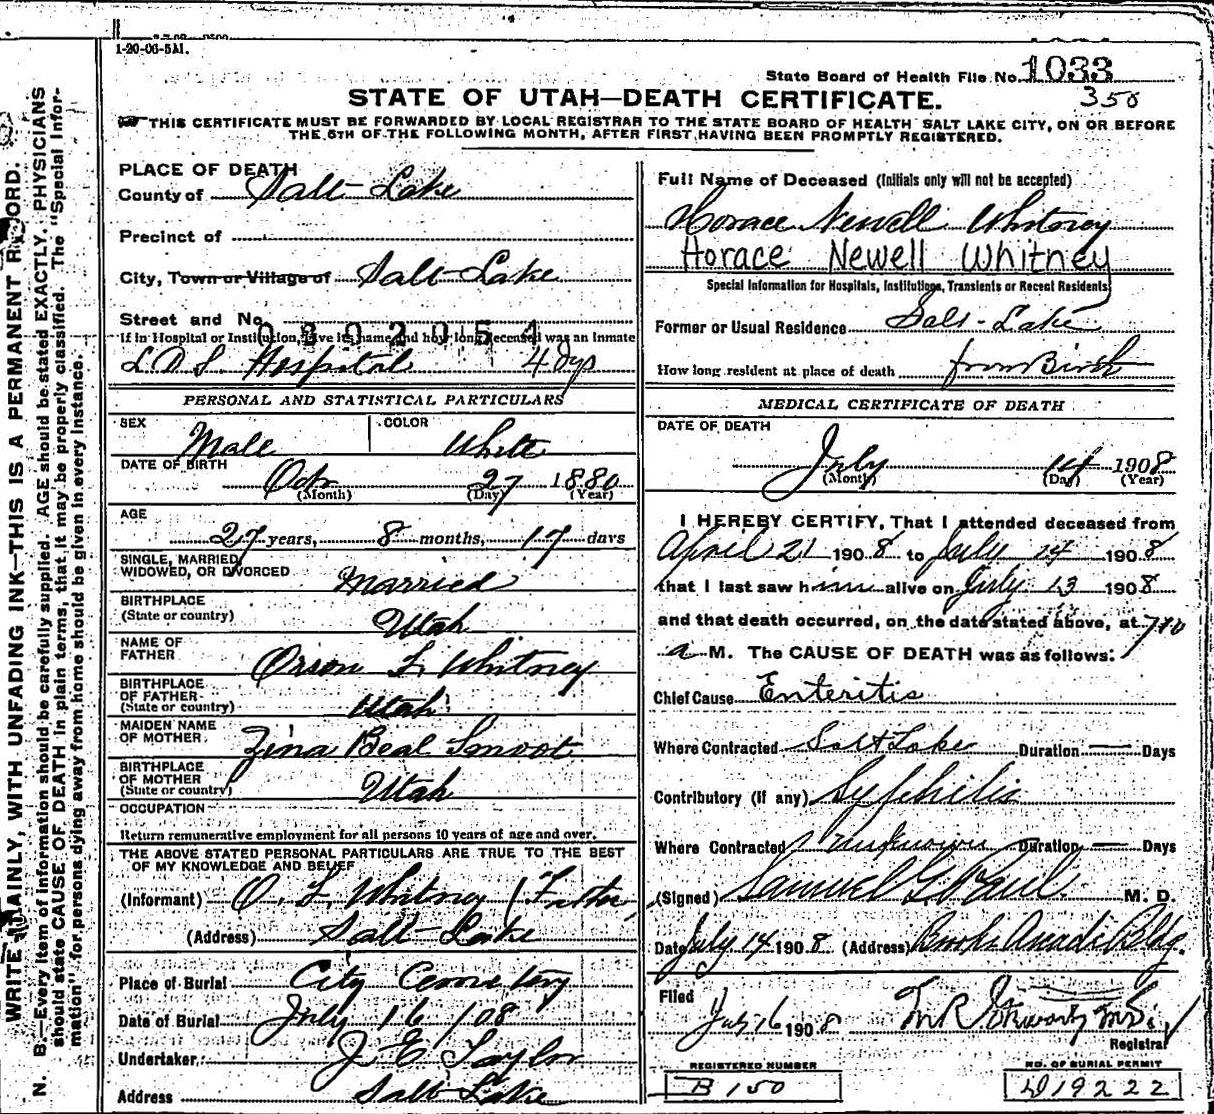 1-20-06-5M.
State Board of Health File No. 1033
350
STATE OF UTAH—DEATH CERTIFICATE.
THIS CERTIFICATE MUST BE FORWARDED BY LOCAL REGISTRAR TO THE STATE BOARD OF HEALTH SALT LAKE CITY, ON OR BEFORE
THE 5TH OF THE FOLLOWING MONTH, AFTER FIRST HAVING BEEN PROMPTLY REGISTERED.
WRITE PLAINLY, WITH UNFADING INK—THIS IS A PERMANENT RECORD.
N. B.—Every item of information should be carefully supplied. AGE should be stated EXACTLY. PHYSICIANS
should state CAUSE OF DEATH in plain terms, that it may be properly classified. The "Special Infor-
mation" for persons dying away from home should be given in every instance.
PLACE OF DEATH
County of Salt Lake
Precinct of
City, Town or Village of Salt Lake
Street and No.
0302054
If in Hospital or Institution, give its name and how long deceased was an inmate
L.D.S. Hospital 4 dys
PERSONAL AND STATISTICAL PARTICULARS
SEX Male COLOR White
DATE OF BIRTH
Oct 27 1880
(Month) (Day) (Year)
AGE
27 years, 8 months, 17 days
SINGLE, MARRIED,
WIDOWED, OR DIVORCED Married
BIRTHPLACE
(State or country) Utah
NAME OF
FATHER Orson F. Whitney
BIRTHPLACE
OF FATHER
(State or country) Utah
MAIDEN NAME
OF MOTHER Zina Beal Smoot
BIRTHPLACE
OF MOTHER
(State or country) Utah
OCCUPATION
Return remunerative employment for all persons 10 years of age and over.
THE ABOVE STATED PERSONAL PARTICULARS ARE TRUE TO THE BEST
OF MY KNOWLEDGE AND BELIEF
(Informant) O. F. Whitney (Father
(Address) Salt Lake
Place of Burial City Cemetery
Date of Burial July 16 /08
Undertaker J E Taylor
Address Salt Lake
Full Name of Deceased (Initials only will not be accepted)
Horace Newell Whitney
Horace Newell Whitney
Special Information for Hospitals, Institutions, Transients or Recent Residents
Former or Usual Residence Salt Lake
How long resident at place of death from Birth
MEDICAL CERTIFICATE OF DEATH
DATE OF DEATH
July 14 1908
(Month) (Day) (Year)
I HEREBY CERTIFY, That I attended deceased from
April 21 1908 to July 14 1908
that I last saw him alive on July 13 1908
and that death occurred, on the date stated above, at 710
a M. The CAUSE OF DEATH was as follows:
Chief Cause Enteritis
Where Contracted Salt Lake Duration — Days
Contributory (if any) Syphilis
Where Contracted Unknown Duration — Days
(Signed) Samuel G. M. D.
Date July 14 1908 (Address) Bldg.
Filed
July 16 1908
Registrar
REGISTERED NUMBER
B 150
NO. OF BURIAL PERMIT
D19222